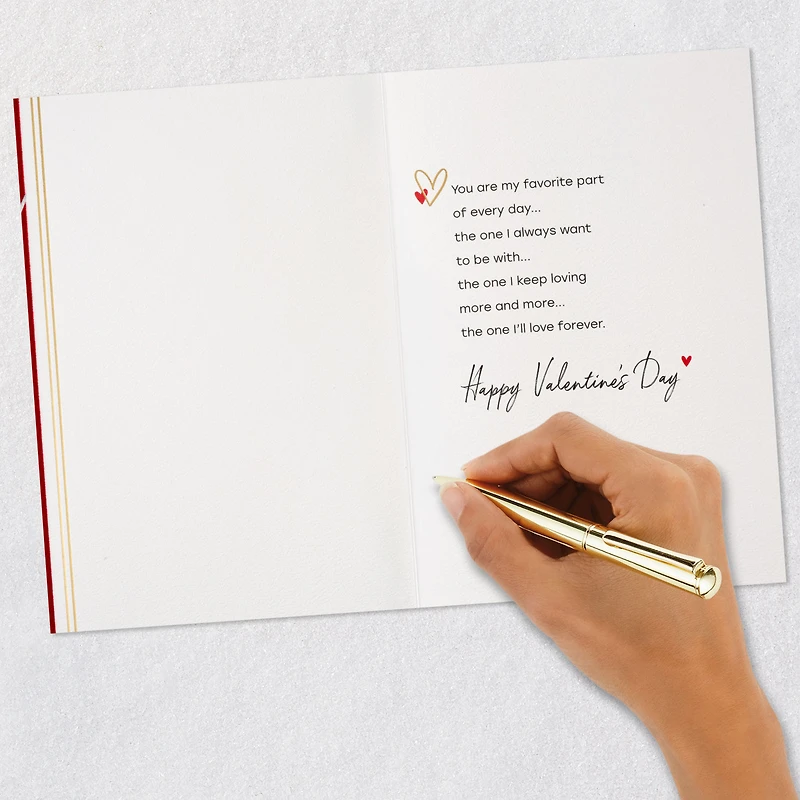 You are my favorite part
of every day...
the one I always want
to be with...
the one I keep loving
more and more...
the one I'll love forever.
Happy Valentine's Day